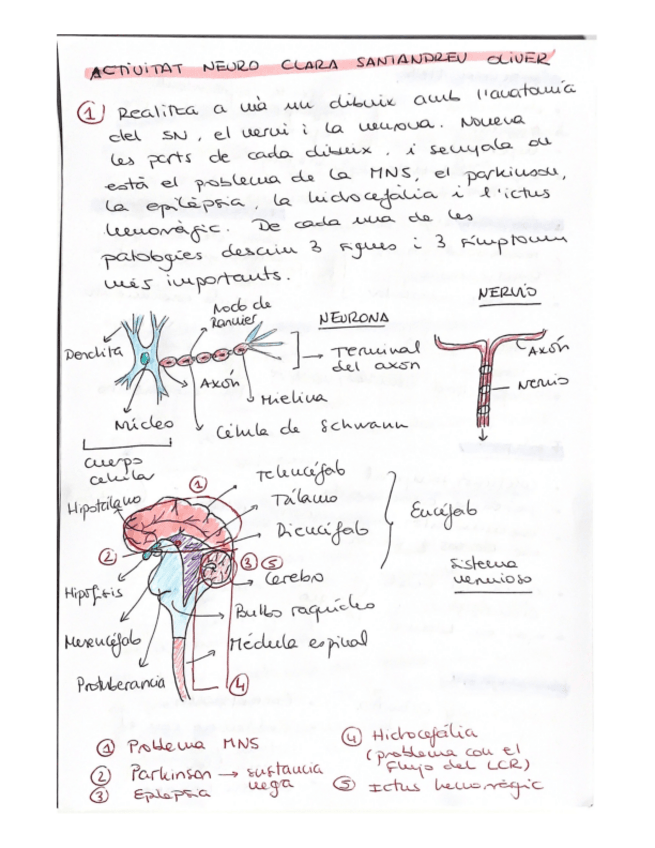 ACTIVITAT NEURO CLARA SANTANDREU OLIVER
① Realitza a mà un dibuix amb l'anatomia
del SN, el nervi i la neurona. Nomena
les parts de cada dibuix, i senyala on
està el problema de la MNS, el parkinson,
la epilèpsia, la hidrocefàlia i l'ictus
hemoràgic. De cada una de les
patologies descriu 3 signes i 3 símptomes
més importants.
NERVIO
Nodo de
Ranvier
NEURONA
Dendrita
Terminal
del axon
Axón
Axón
Nervio
Mielina
Núcleo
Célula de Schwann
Cuerpo
celular
Telencéfalo
①
Hipotálamo
Tálamo
Diencéfalo
Encéfalo
②
③ ⑤
Cerebro
Sistema
nervioso
Hipófisis
Bulbo raquídeo
Mesencéfalo
Médula espinal
Protuberancia
④
① Problema MNS
② Parkinson → sustancia
nega
③ Epilepsia
④ Hidrocefàlia
(problema con el
flujo del LCR)
⑤ Ictus hemoràgic